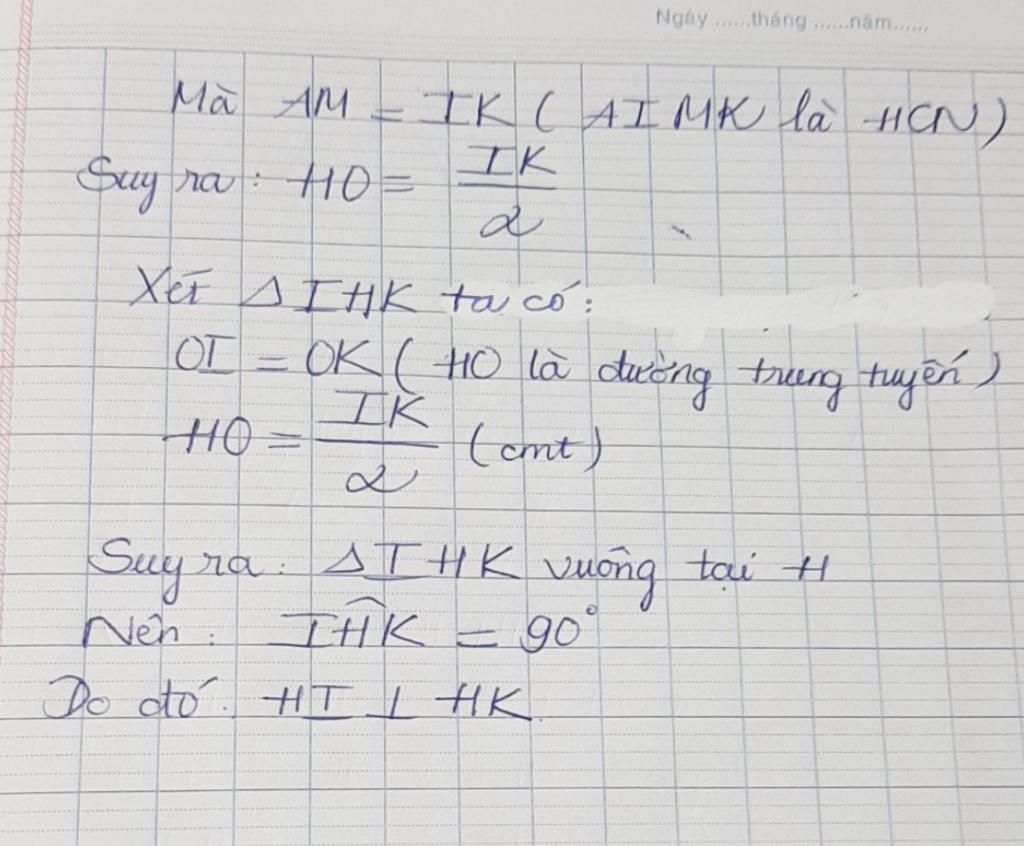 Ngày ......tháng ......năm......
Mà AM = IK ( AIMK là HCN )
Suy ra : HO = IK/2
Xét Δ IHK ta có :
OI = OK ( HO là đường trung tuyến )
HO = IK/2 ( cmt )
Suy ra : Δ IHK vuông tại H
Nên : IĤK = 90°
Do đó : HI ⊥ HK.